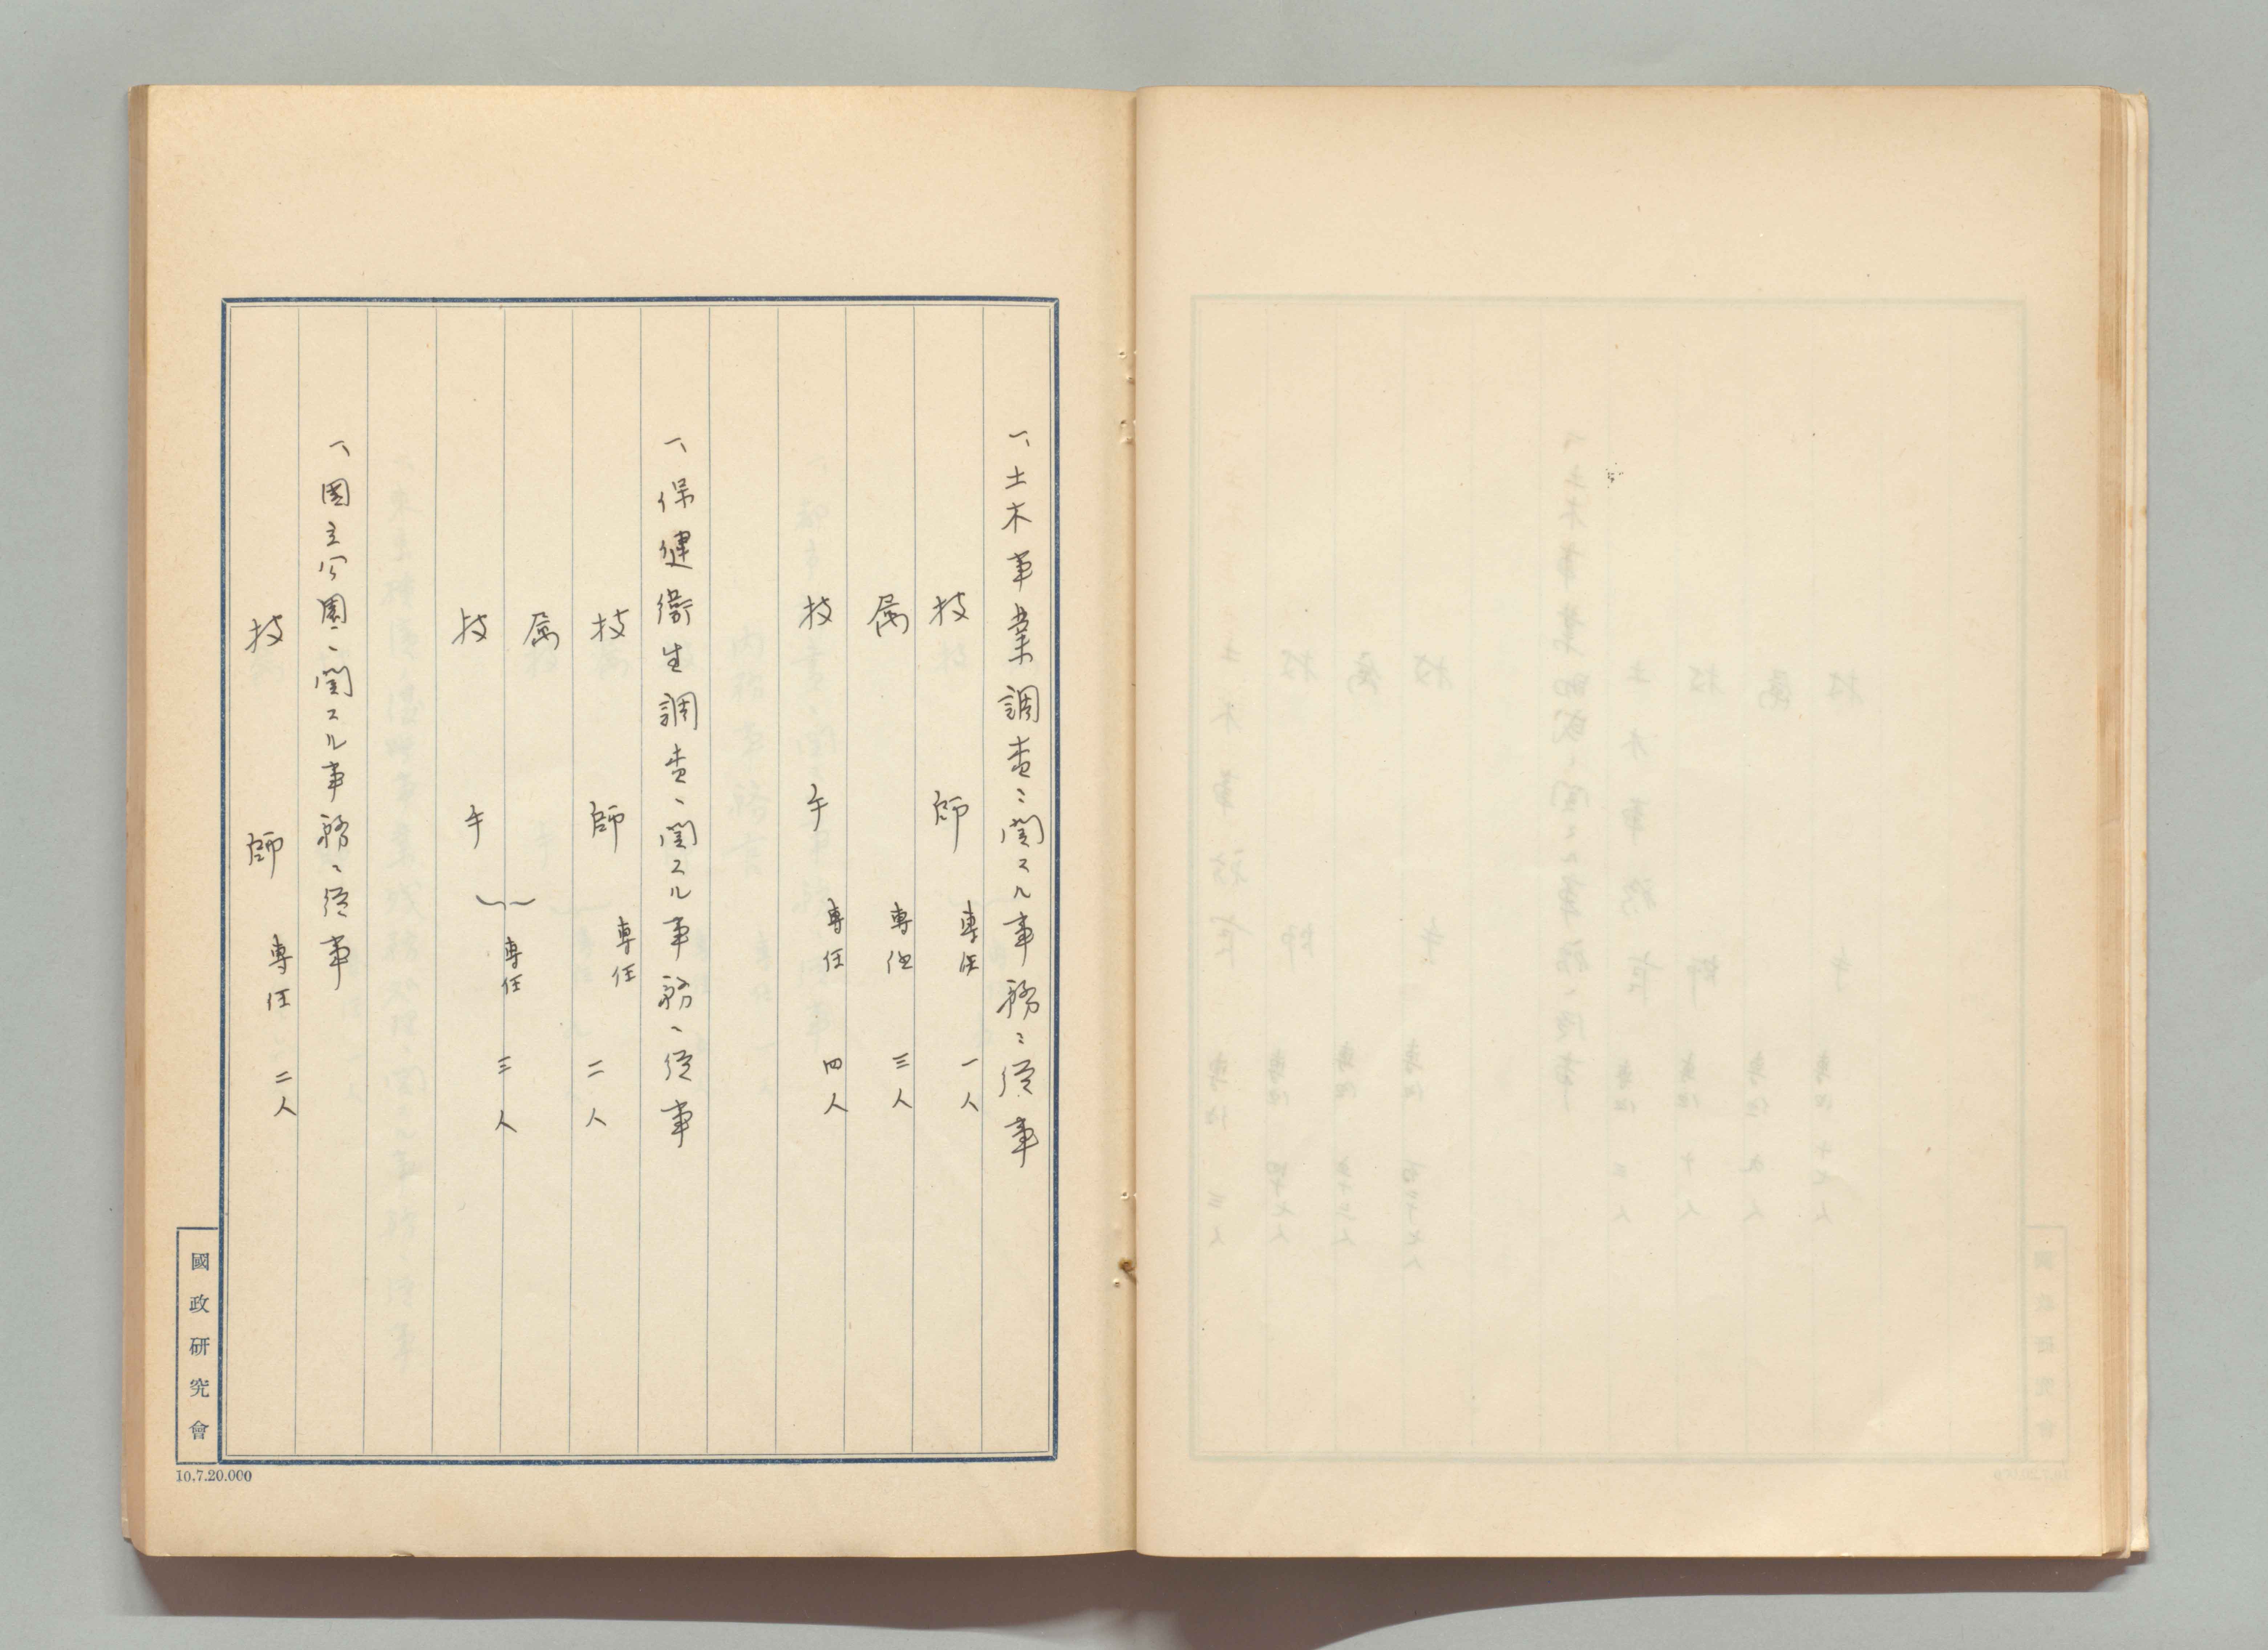 一、土木事業調査ニ関スル事務ニ従事
技師 専任 一人
属 専任 三人
技手 専任 四人
一、保健衛生調査ニ関スル事務ニ従事
技師 専任 二人
属
技手 専任 三人
一、國立公園ニ関スル事務ニ従事
技師 専任 二人
國政研究會
10.7.20.000